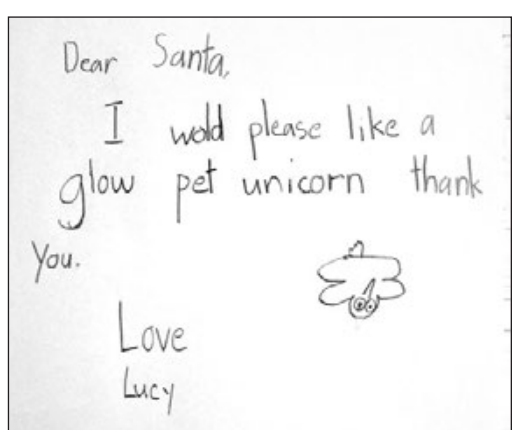 Dear Santa,
I wold please like a
glow pet unicorn thank
you.
Love
Lucy